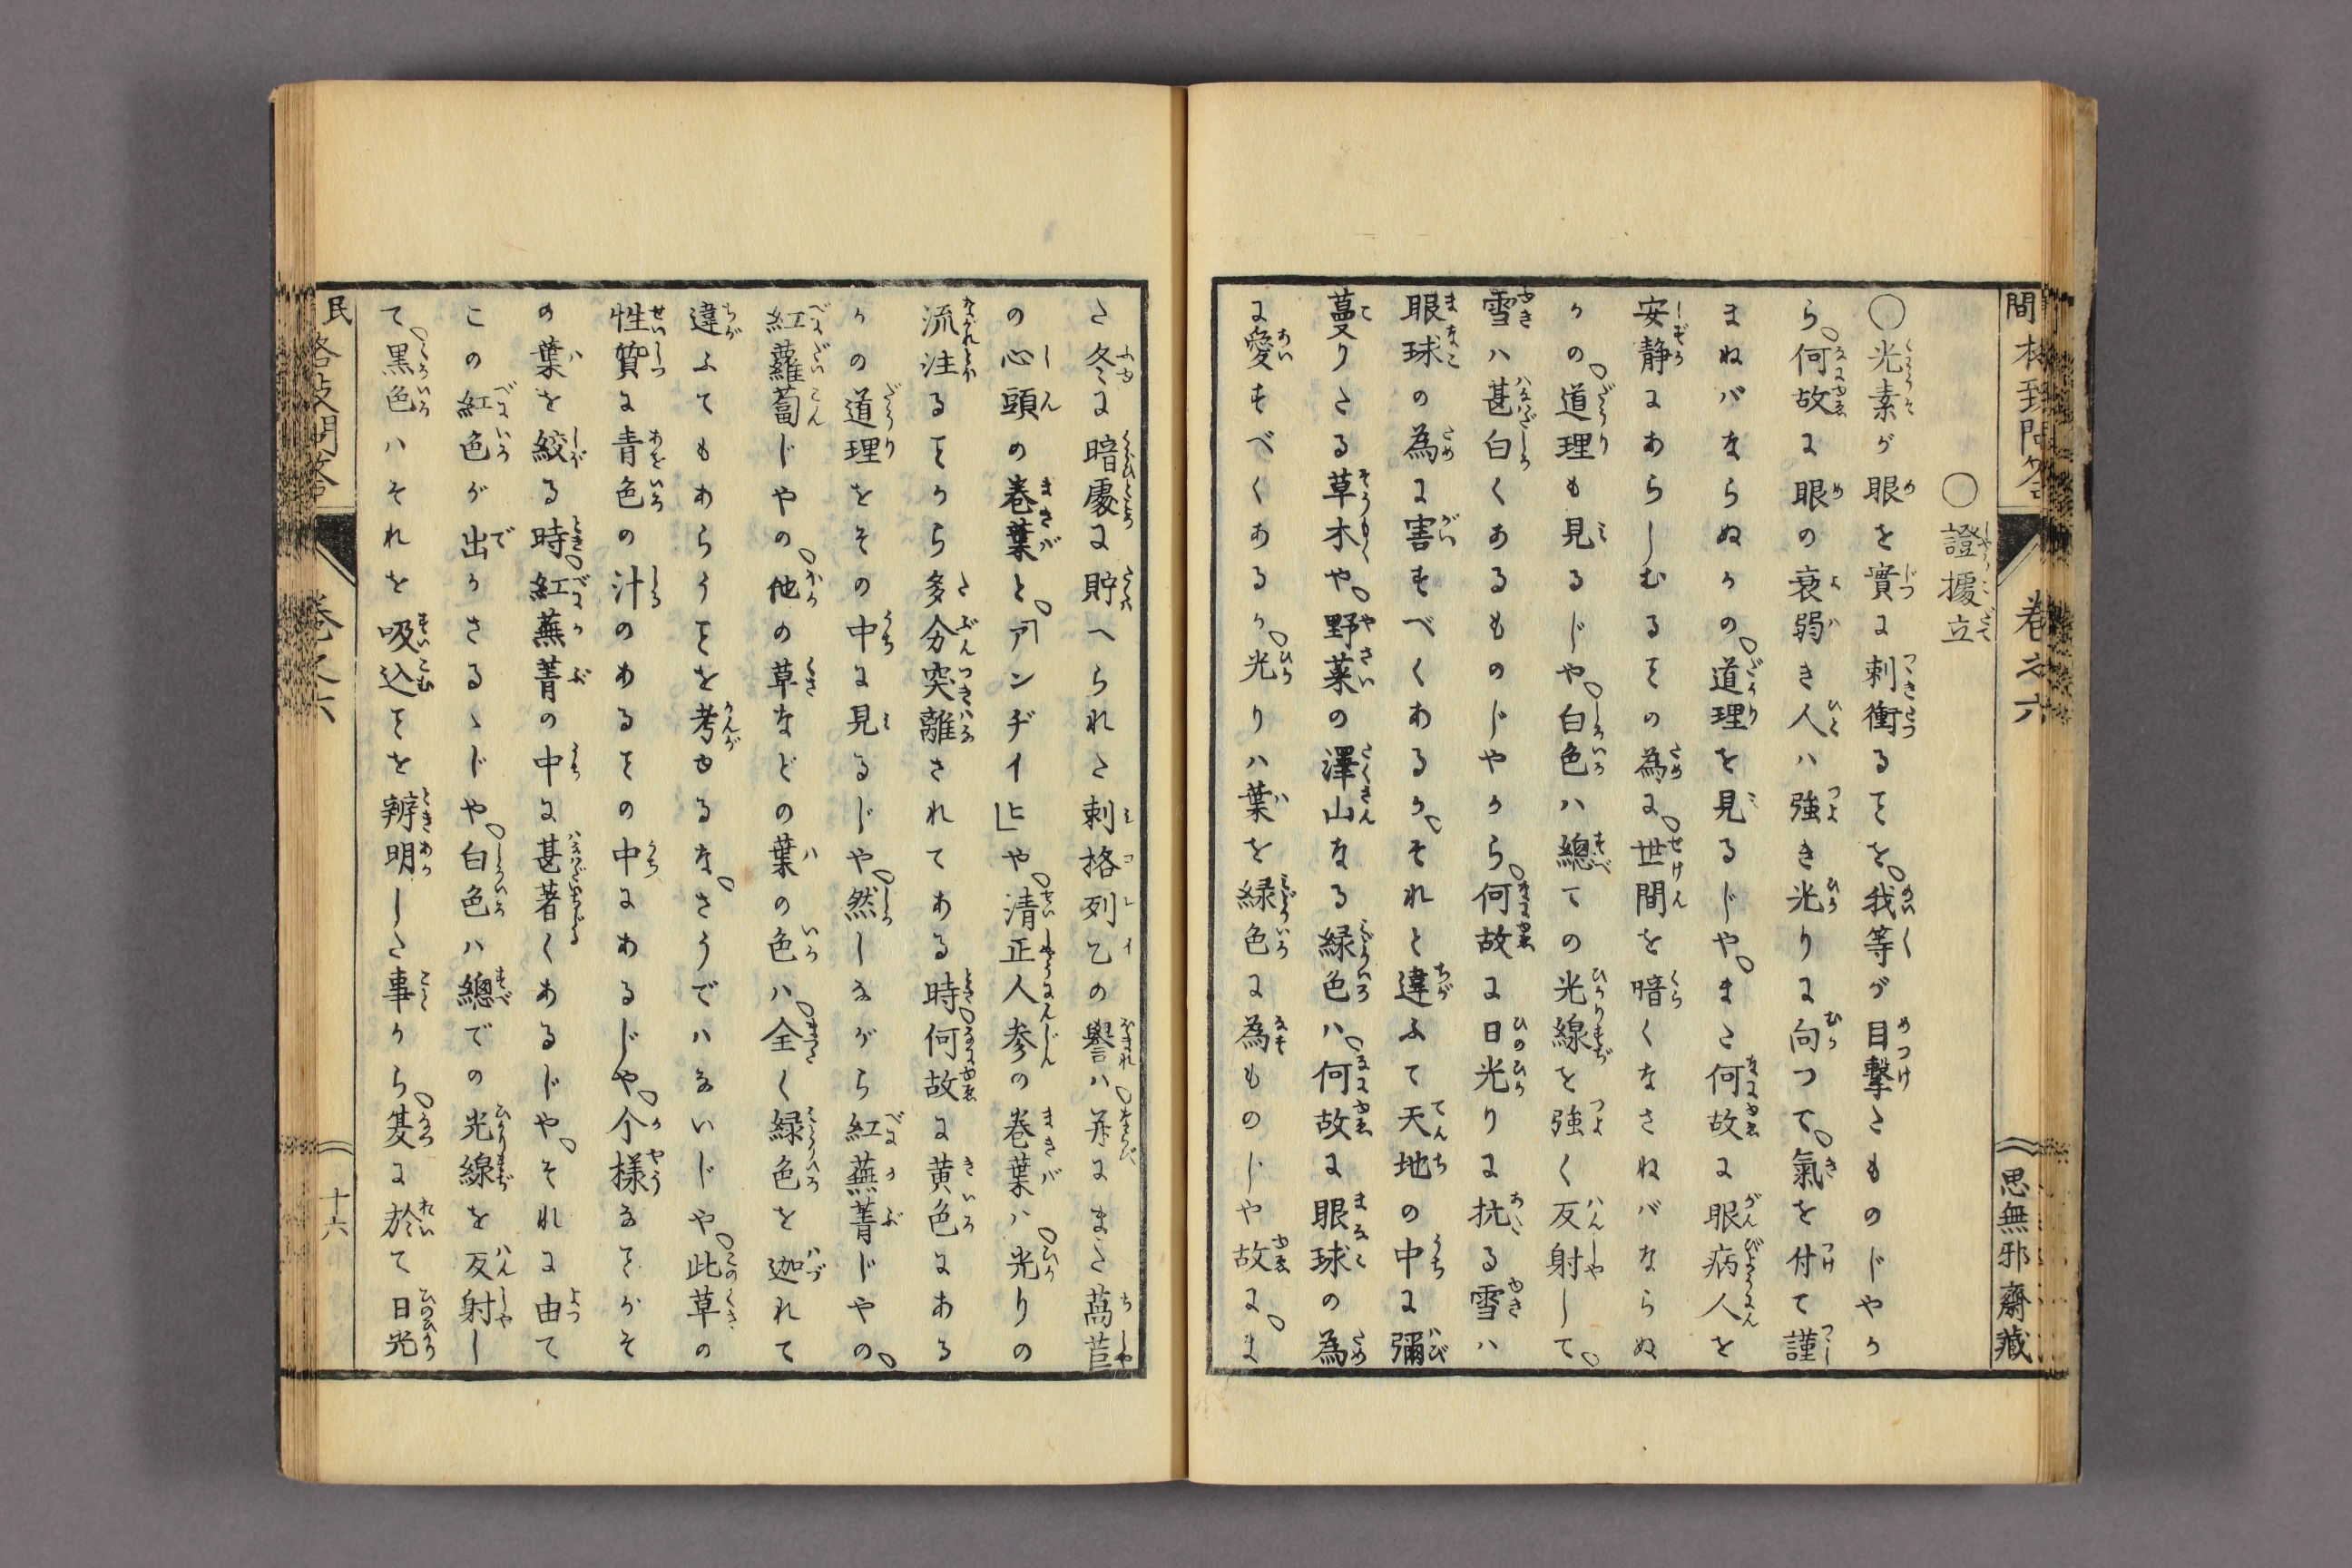 ○證據立
○光素が眼を實に刺衝るヿを我等が目撃たものじやか
ら何故に眼の衰弱き人ハ強き光りに向つて氣を付て謹
まねバならぬかの道理を見るじやまた何故に眼病人を
安静にあらしむるヿの為に世間を暗くなさねバならぬ
かの道理も見るじや白色ハ總ての光線を強く反射して
雪ハ甚白くあるものじやから何故に日光りに抗る雪ハ
眼球の為に害すべくあるかそれと違ふて天地の中に彌
蔓りたる草木や野菜の澤山なる緑色ハ何故に眼球の為
に愛すべくあるか光りハ葉を緑色に為ものじや故にま
思無邪齋蔵
た冬に暗處に貯へられた剌格列乙の譽ハ并にまた萵苣
の心頭の巻葉と「アンヂイヒ」や清正人参の巻葉ハ光りの
流注るヿから多分突離されてある時何故に黄色にある
かの道理をその中に見るじや然しながら紅蕪菁じやの
紅蘿蔔じやの他の草などの葉の色ハ全く緑色を迦れて
違ふてもあらうヿを考ゆるなさうでハないじや此草の
性質に青色の汁のあるヿの中にあるじや个様なヿがそ
の葉を絞る時紅蕪菁の中に甚著くあるじやそれに由て
この紅色が出かさるゝじや白色ハ總での光線を反射し
て黒色ハそれを吸込ヿを辨明した事から爰に於て日光
民
十六